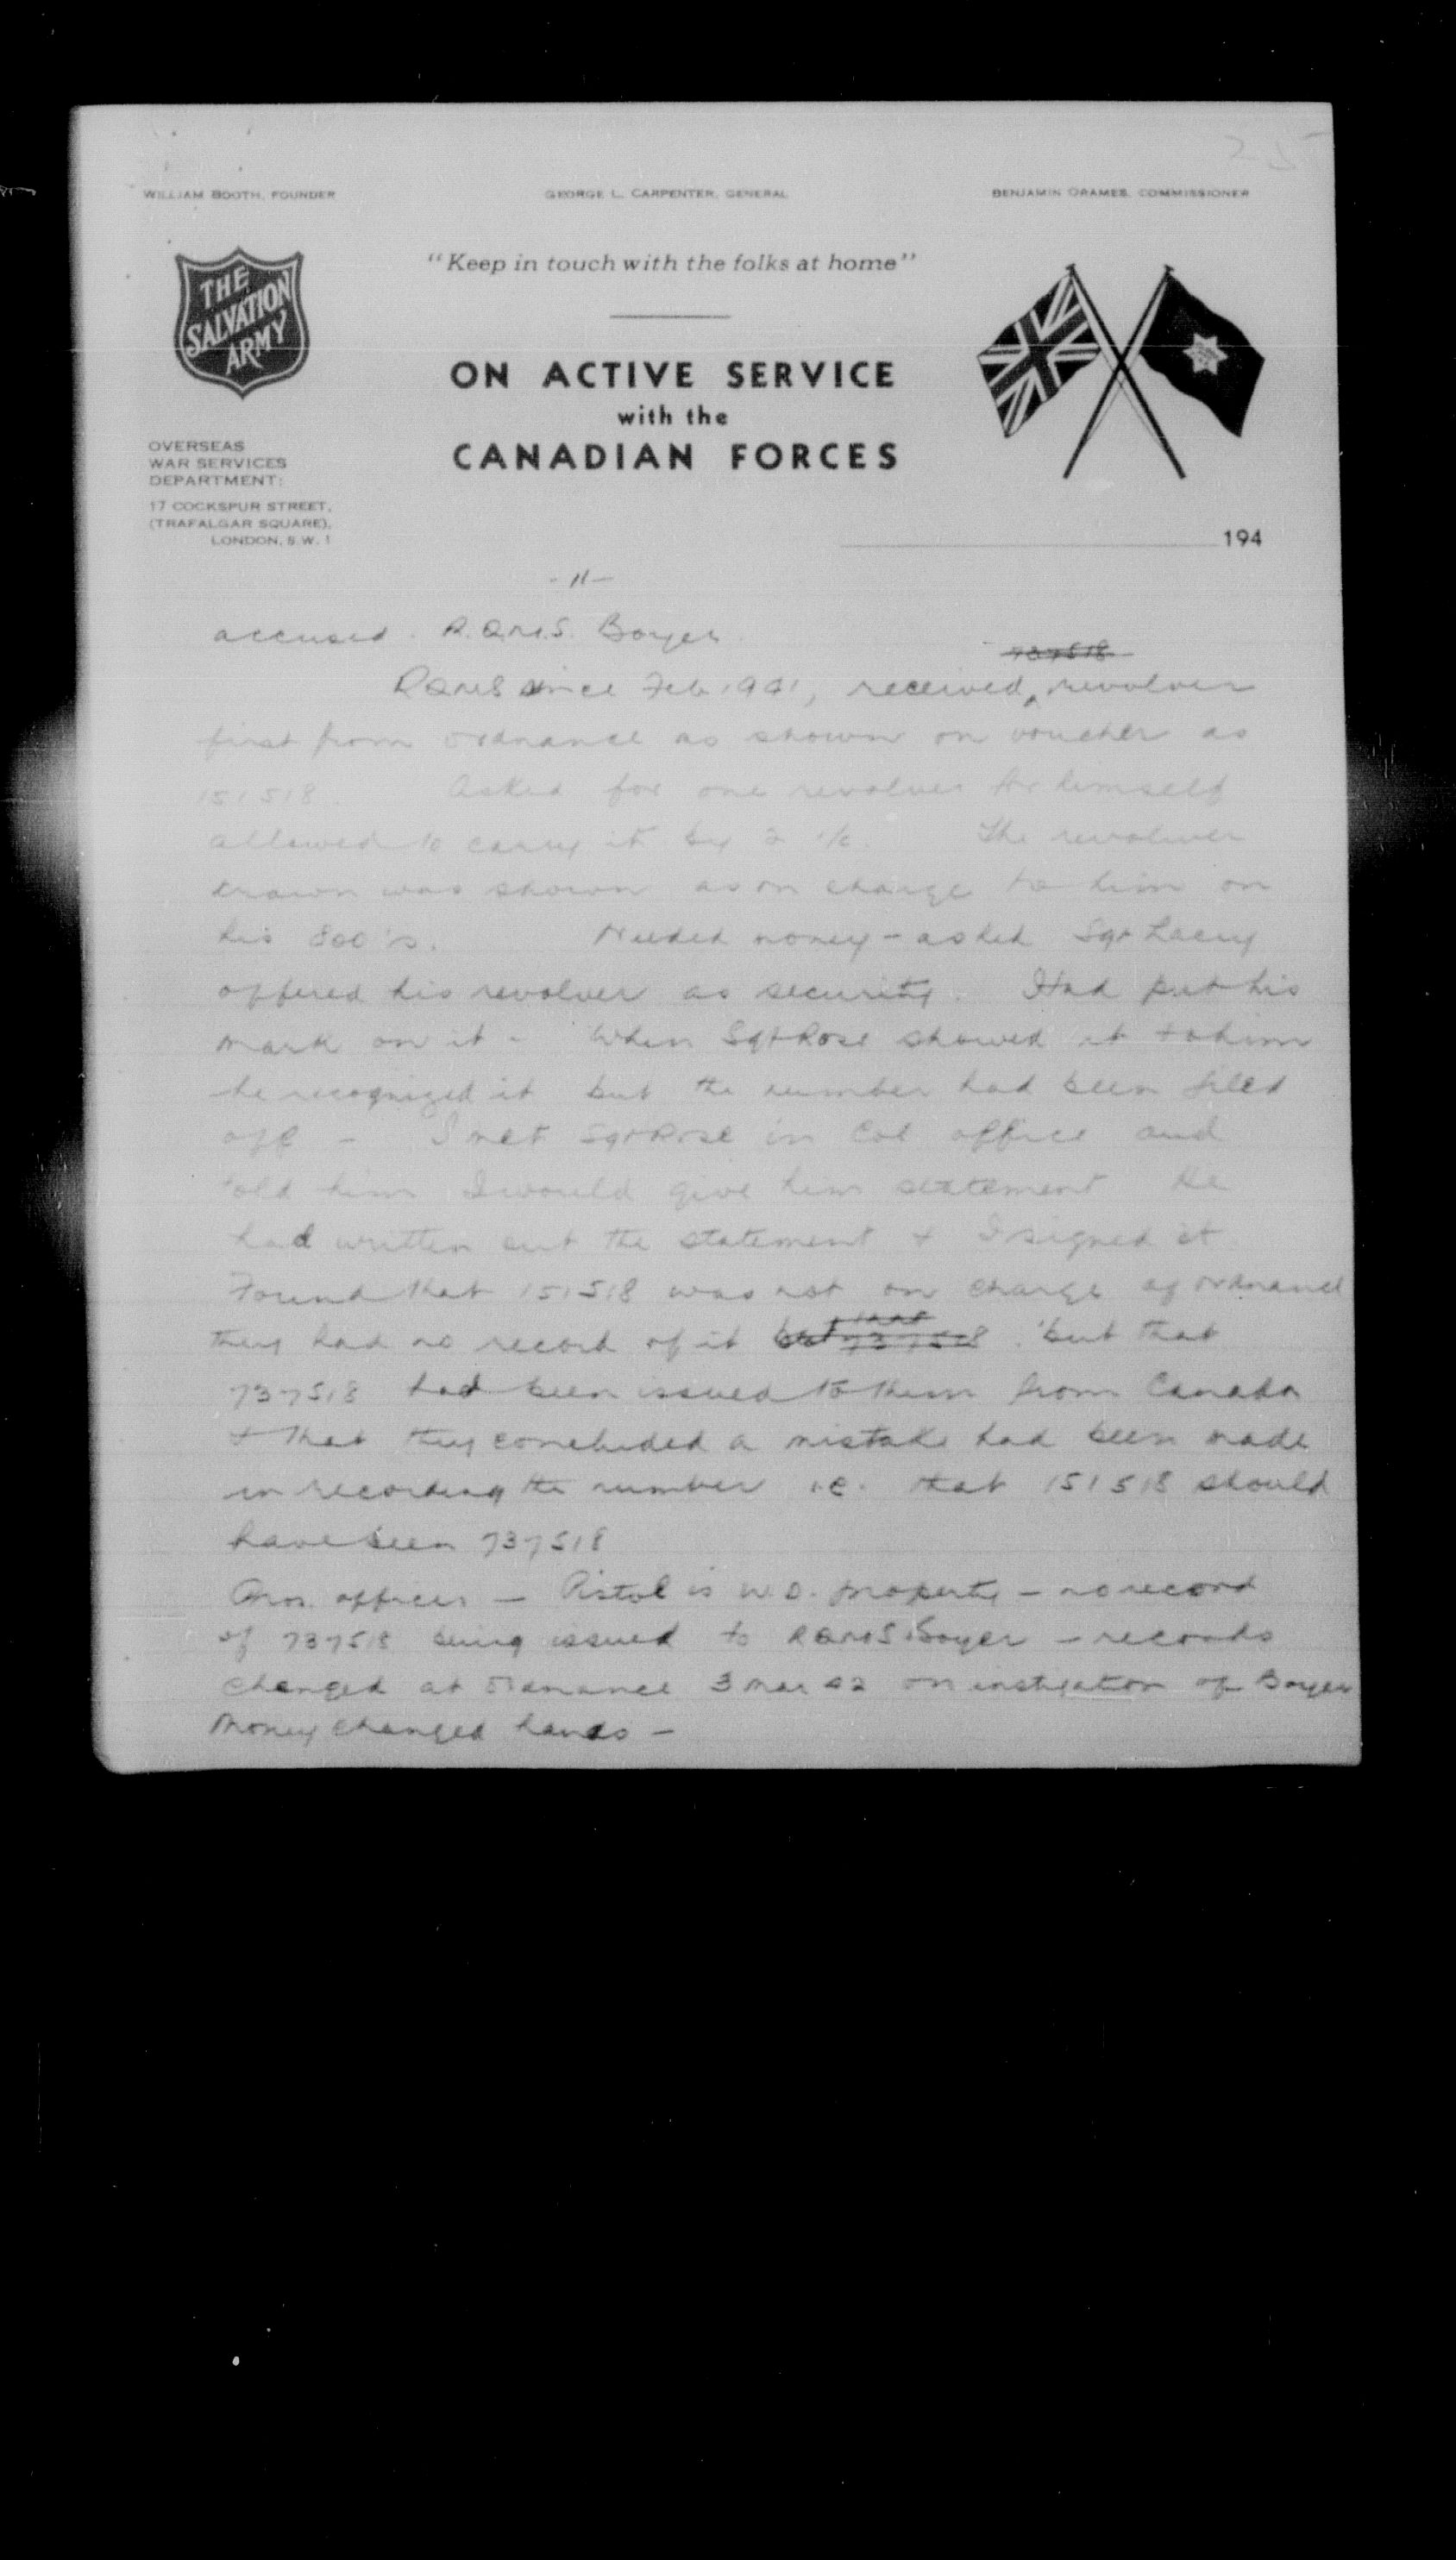 25
WILLIAM BOOTH, FOUNDER
GEORGE L. CARPENTER, GENERAL
BENJAMIN ORAMES, COMMISSIONER
THE
SALVATION
ARMY
"Keep in touch with the folks at home"
ON ACTIVE SERVICE
with the
CANADIAN FORCES
OVERSEAS
WAR SERVICES
DEPARTMENT:
17 COCKSPUR STREET,
(TRAFALGAR SQUARE),
LONDON, S.W. 1
194
- 11 -
accused. R.Q.M.S. Boyer
737518
RQMS since Feb 1941, received revolver
first from ordnance as shown on voucher as
151518. Asked for one revolver for himself
allowed to carry it by 2 i/c. The revolver
drawn was shown as on charge to him on
his 800's. Needed money - asked Sgt Lacey
offered his revolver as security. Had put his
mark on it - When Sgt Rose showed it to him
he recognized it but the number had been filed
off - I met Sgt Rose in Col office and
told him I would give him statement He
had written out the statement + I signed it
Found that 151518 was not on charge of ordnance
that
they had no record of it but 737518 but that
737518 had been issued to them from Canada
+ that they concluded a mistake had been made
in recording the number i.e. that 151518 should
have been 737518
Pros. officer - Pistol is W.D. property - no record
of 737518 being issued to RQMS Boyer - records
changed at Ordnance 3 Mar 42 on instigation of Boyer
Money changed hands -